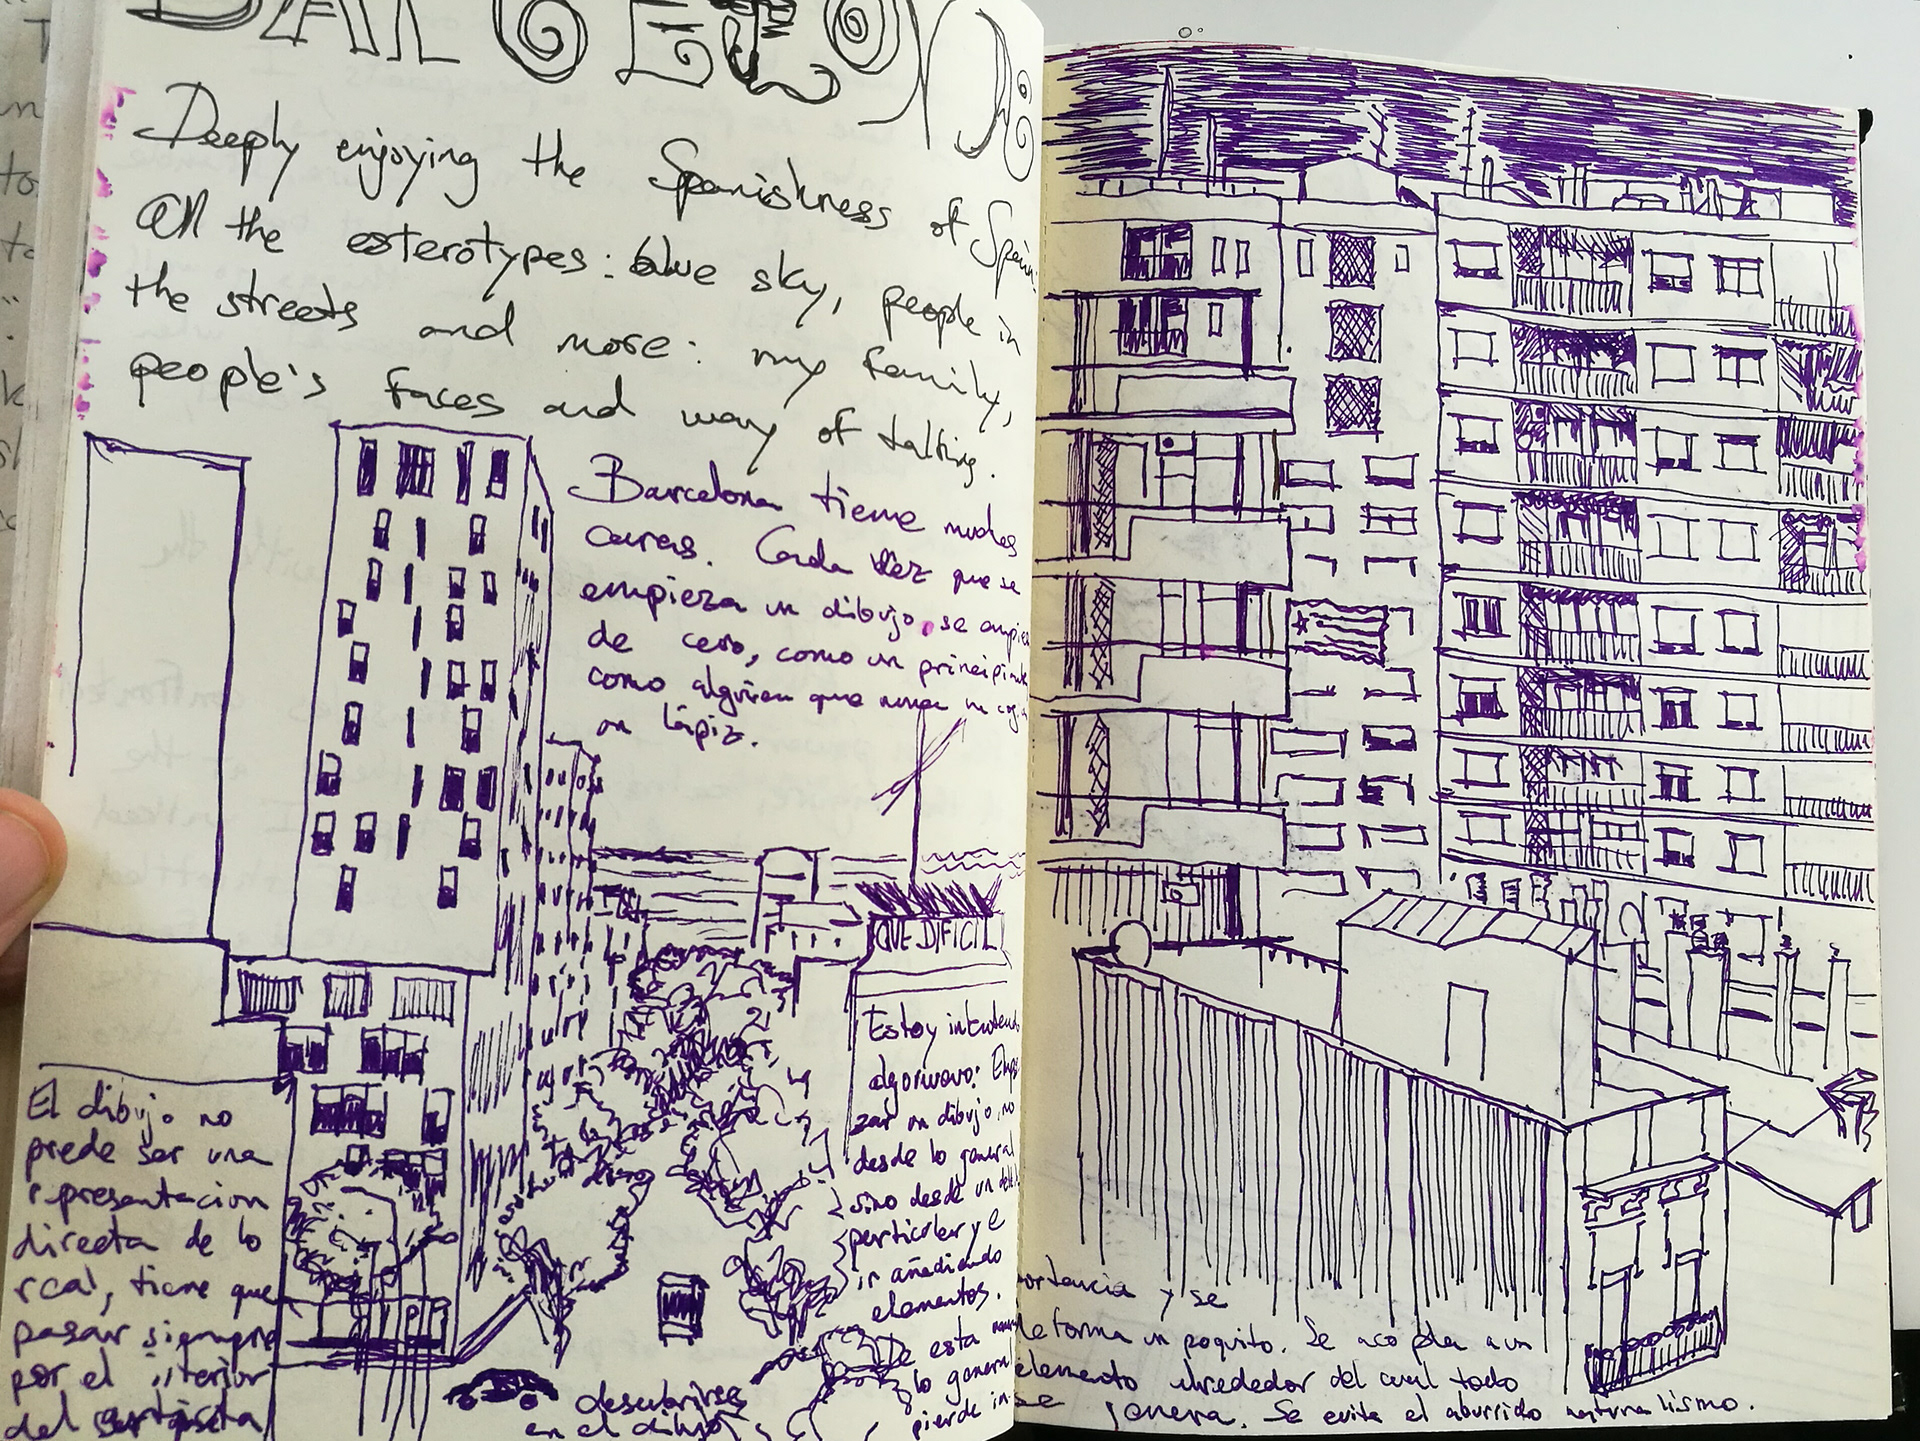 BARCELONA
Deeply enjoying the Spanishness of Spain.
All the esterotypes: blue sky, people in
the streets and more: my family,
people's faces and way of talking.
Barcelona tiene muchas
caras. Cada vez que se
empieza un dibujo, se empieza
de cero, como un principiante
como alguien que nunca
un lápiz.
QUE DIFICIL
Estoy intentando
algo nuevo: Empe
zar un dibujo, no
desde lo general
sino desde un detalle
particular y e
ir añadiendo
elementos.
De esta
lo general
pierde im-
portancia y se
deforma un poquito. Se acopla a un
elemento alrededor del cual todo
se genera. Se evita el aburrido naturalismo.
El dibujo no
puede ser una
representacion
directa de lo
real, tiene que
pasar siempre
por el interior
del artista
descubrirse
en el dibujo